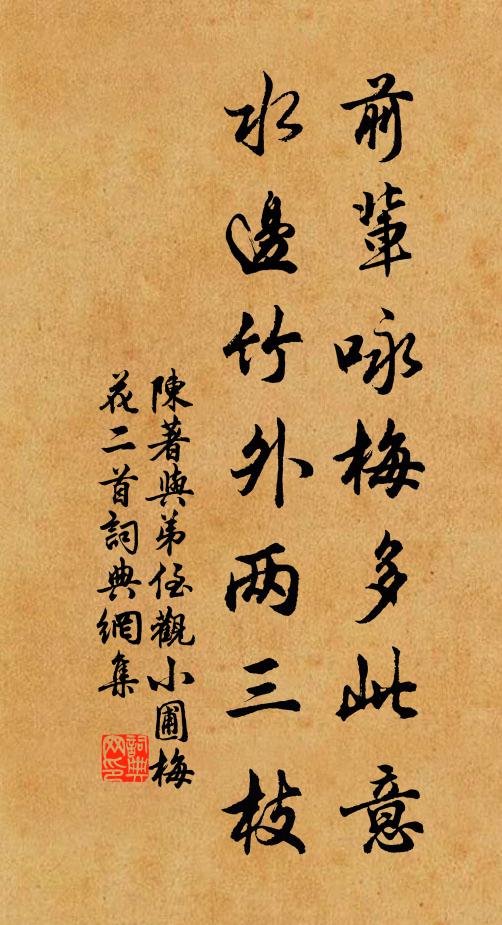 前輩咏梅多此意
水邊竹外两三枝
陳著與弟侄觀小圃梅
花二首詞典網集
詞典
网印